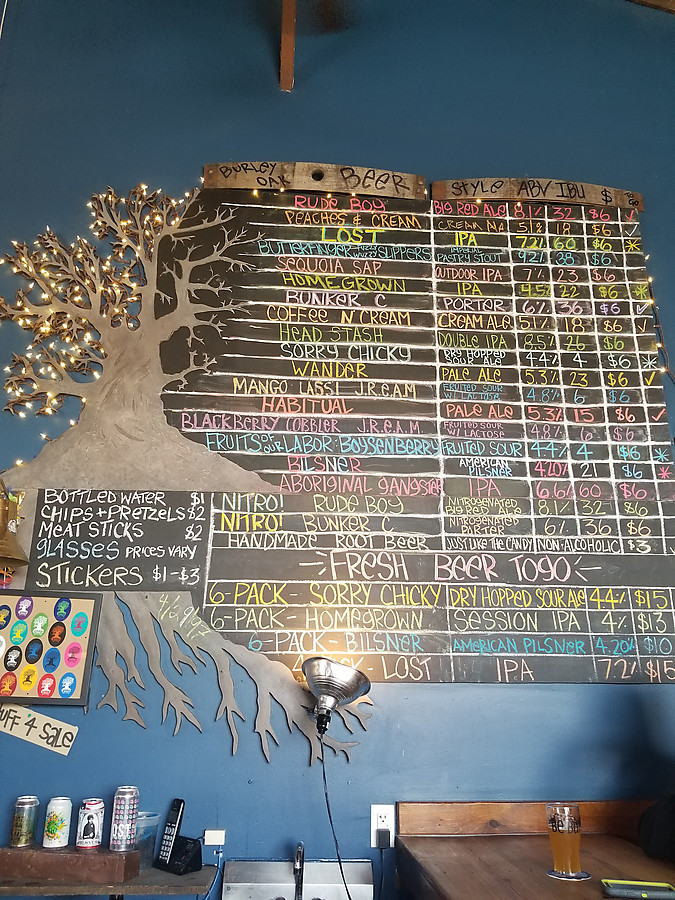 BURLEY OAK BEER STYLE ABV IBU $ TO GO
RUDE BOY BIG RED ALE 8.1% 32 $6 ✓
PEACHES & CREAM CREAM ALE 5.1% 18 $6 ✓
LOST IPA 7.2% 60 $6 *
BUTTERFINGER FUZZY WUZZY SLIPPERS IMPERIAL PASTRY STOUT 9.2% 38 $6
SEQUOIA SAP OUTDOOR IPA 7% 23 $6
HOMEGROWN IPA 4.5% 22 $6 *
BUNKER C PORTER 6% 36 $6 ✓
COFFEE N CREAM CREAM ALE 5.1% 18 $6 ✓
HEAD STASH DOUBLE IPA 8.5% 26 $6
SORRY CHICKY DRY HOPPED SOUR ALE 4.4% 4 $6 *
WANDER PALE ALE 5.3% 23 $6 ✓
MANGO LASSI J.R.E.A.M FRUITED SOUR W/ LACTOSE 4.8% 6 $6
HABITUAL PALE ALE 5.3% 15 $6 ✓
BLACKBERRY COBBLER J.R.E.A.M FRUITED SOUR W/ LACTOSE 4.8% 6 $6
FRUITS OF OUR LABOR: BOYSENBERRY FRUITED SOUR 4.4% 4 $6 *
BILSNER AMERICAN PILSNER 4.20% 21 $6 *
ABORIGINAL GANGSTER IPA 6.6% 60 $6
NITRO! RUDE BOY NITROGENATED BIG RED ALE 8.1% 32 $6
NITRO! BUNKER C NITROGENATED PORTER 6% 36 $6
HANDMADE ROOT BEER JUST LIKE THE CANDY NON-ALCOHOLIC $3
FRESH BEER TO GO
6-PACK - SORRY CHICKY DRY HOPPED SOUR ALE 4.4% $15
6-PACK - HOMEGROWN SESSION IPA 4% $13
6-PACK - BILSNER AMERICAN PILSNER 4.20% $10
- LOST IPA 7.2% $15
BOTTLED WATER $1
CHIPS + PRETZELS $2
MEAT STICKS $2
GLASSES PRICES VARY
STICKERS $1-$3
4 SALE